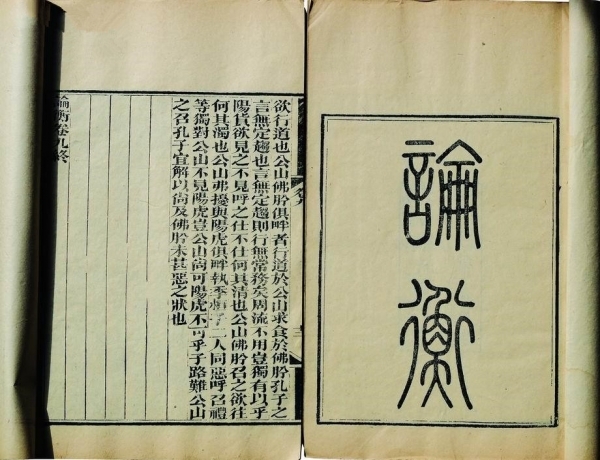 論衡
欲行道也公山佛肸俱畔者行道於公山求食於佛肸孔子之
言無定趨也言無定趨則行無常務矣周流不用豈獨有以乎
陽貨欲見之不見呼之仕不仕何其清也公山佛肸召之欲往
何其濁也公山弗擾與陽虎俱畔執季子二人同惡呼召禮
等獨對公山不見陽虎豈公山尚可陽虎不可乎子路難公山
之召孔子宜解以尚及佛肸未甚惡之狀也
論衡卷九終